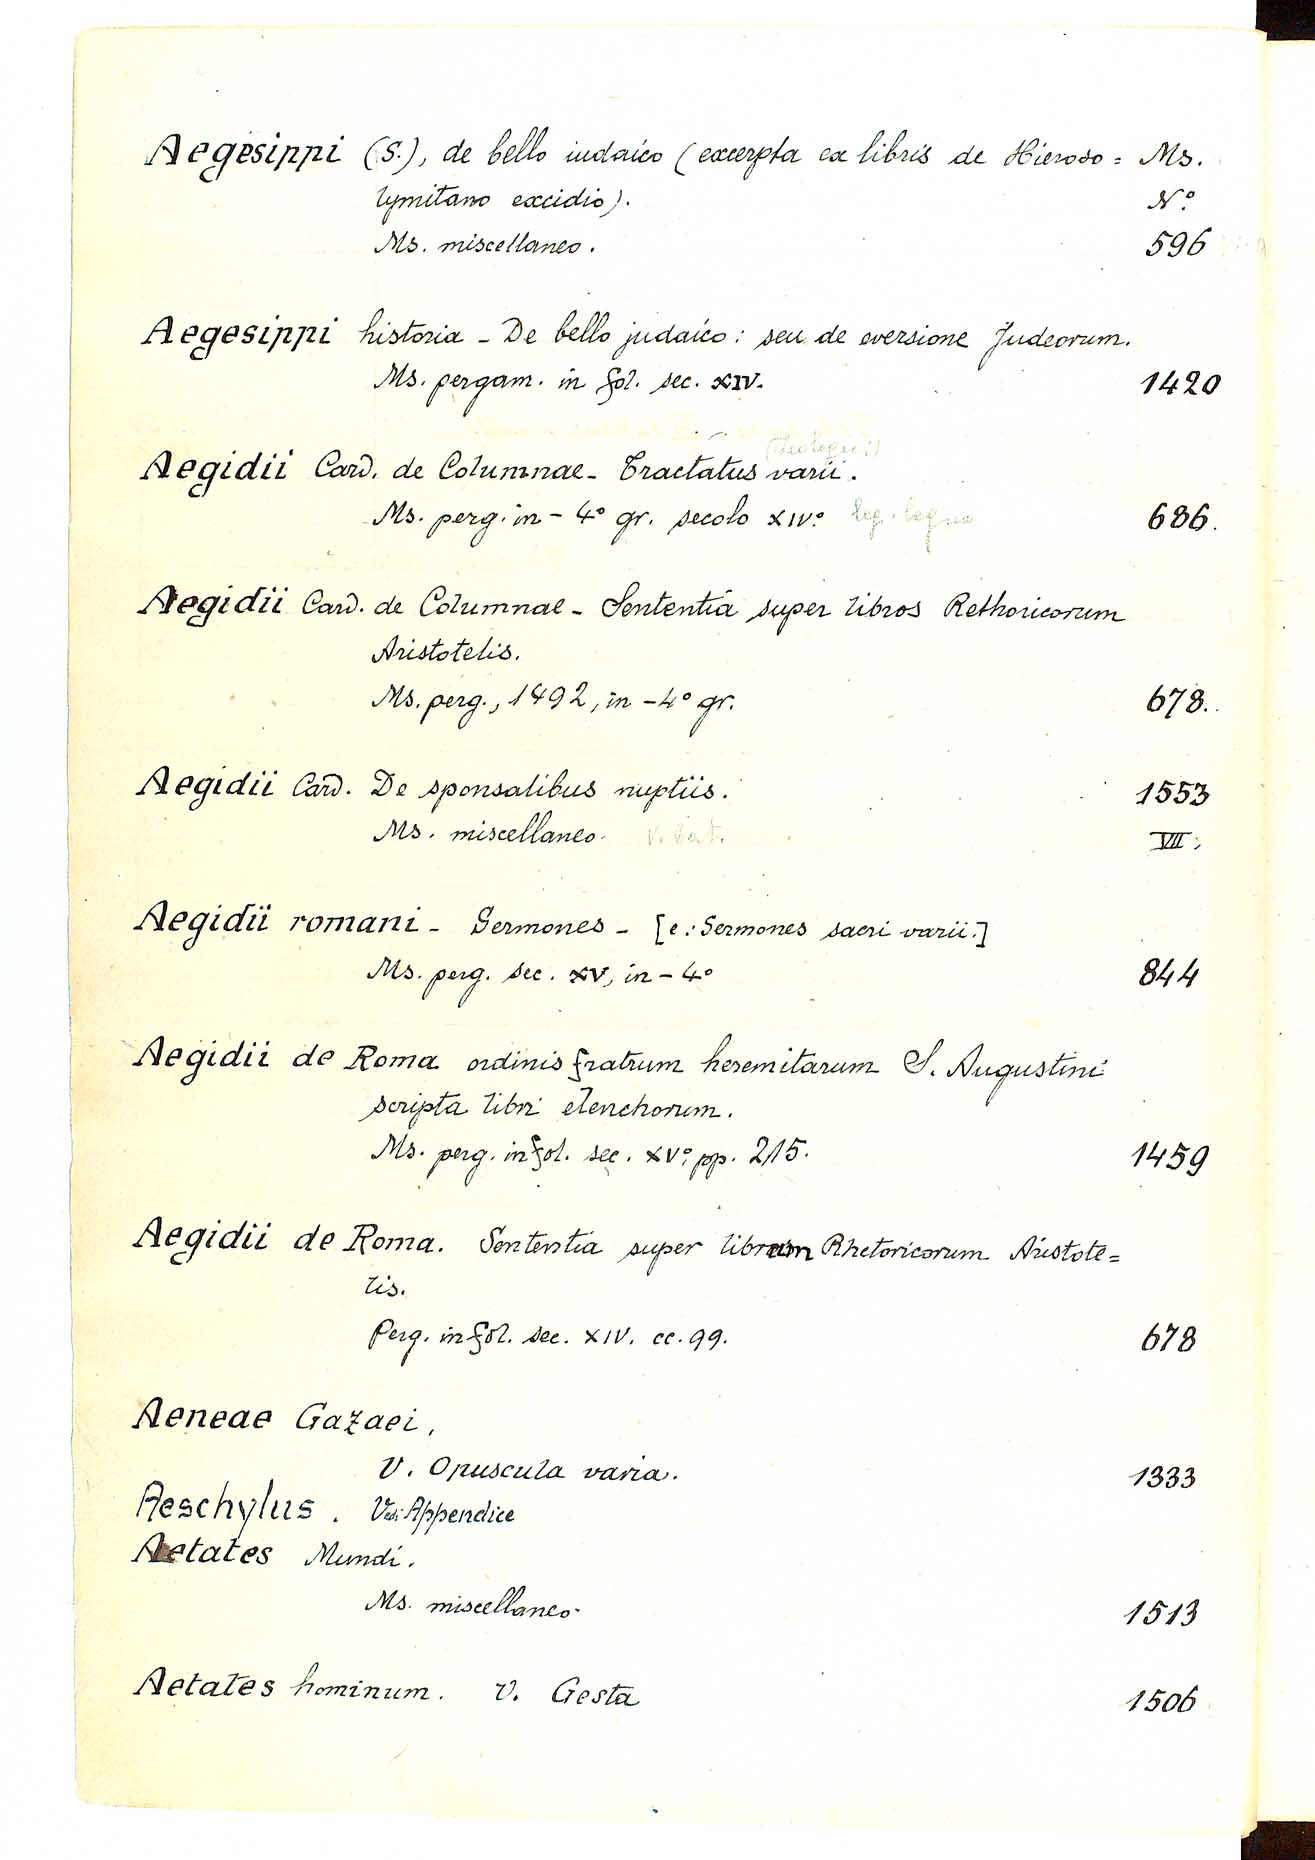 Aegesippi (S.), de bello iudaico (excerpta ex libris de Hieroso= Ms.
lymitano excidio). N.º
Ms. miscellaneo. 596
Aegesippi historia - De bello judaico: seu de eversione Judeorum.
Ms. pergam. in fol. sec. XIV. 1420
(Teologici)
Aegidii Card. de Columnae - Tractatus varii.
Ms. perg. in - 4º gr. secolo XIVº leg. legno 686.
Aegidii Card. de Columnae - Sententia super libros Rethoricorum
Aristotelis.
Ms. perg., 1492, in - 4º gr. 678.
Aegidii Card. De sponsalibus nuptiis. 1553
Ms. miscellaneo. VII;
Aegidii romani - Sermones - [e: Sermones sacri varii.]
Ms. perg. sec. XV, in - 4º 844
Aegidii de Roma ordinis fratrum heremitarum S. Augustini
scripta libri elenchorum.
Ms. perg. in fol. sec. XVº, pp. 215. 1459
Aegidii de Roma. Sententia super librum Rhetoricorum Aristote=
lis.
Perg. in fol. sec. XIV. cc. 99. 678
Aeneae Gazaei,
V. Opuscula varia. 1333
Aeschylus. Vedi Appendice
Aetates Mundi.
Ms. miscellaneo. 1513
Aetates hominum. V. Gesta 1506